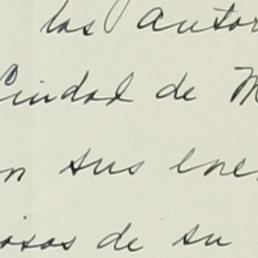 las autor
Ciudad de M
n sus ene
osos de su